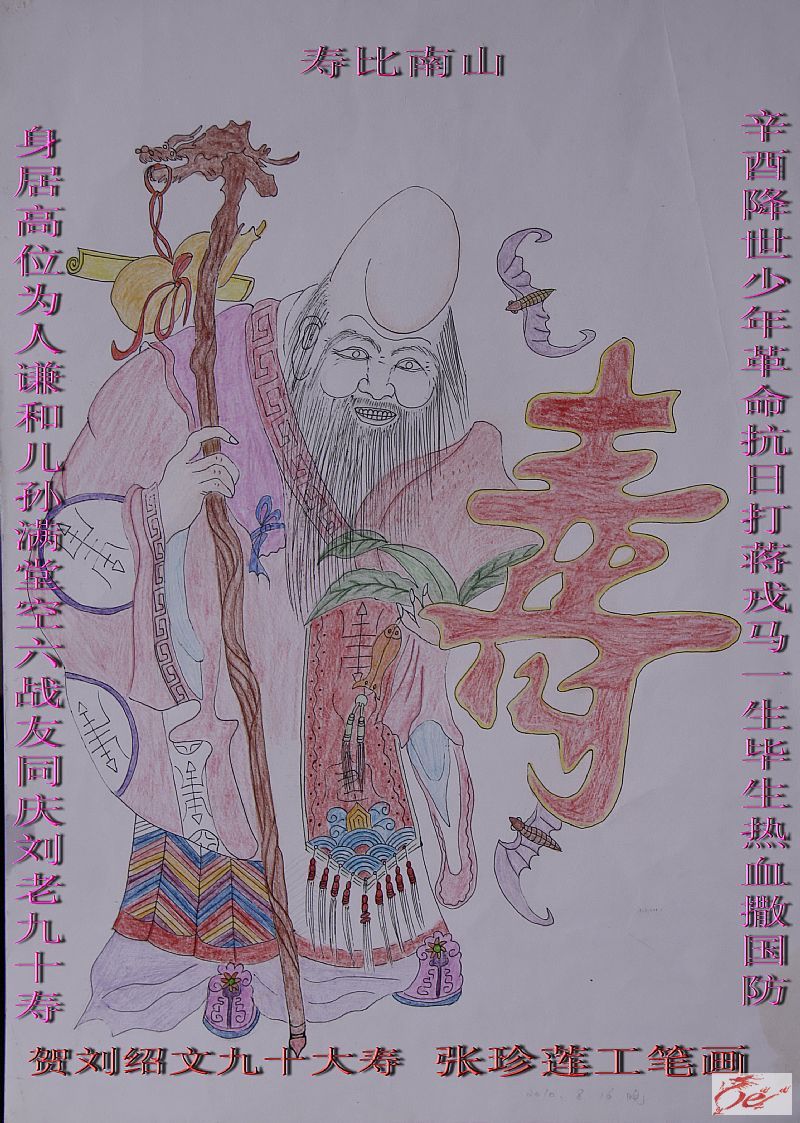 寿比南山
辛酉降世少年革命抗日打蒋戎马一生毕生热血撒国防
身居高位为人谦和儿孙满堂空六战友同庆刘老九十寿
寿
贺刘绍文九十大寿 张珍莲工笔画